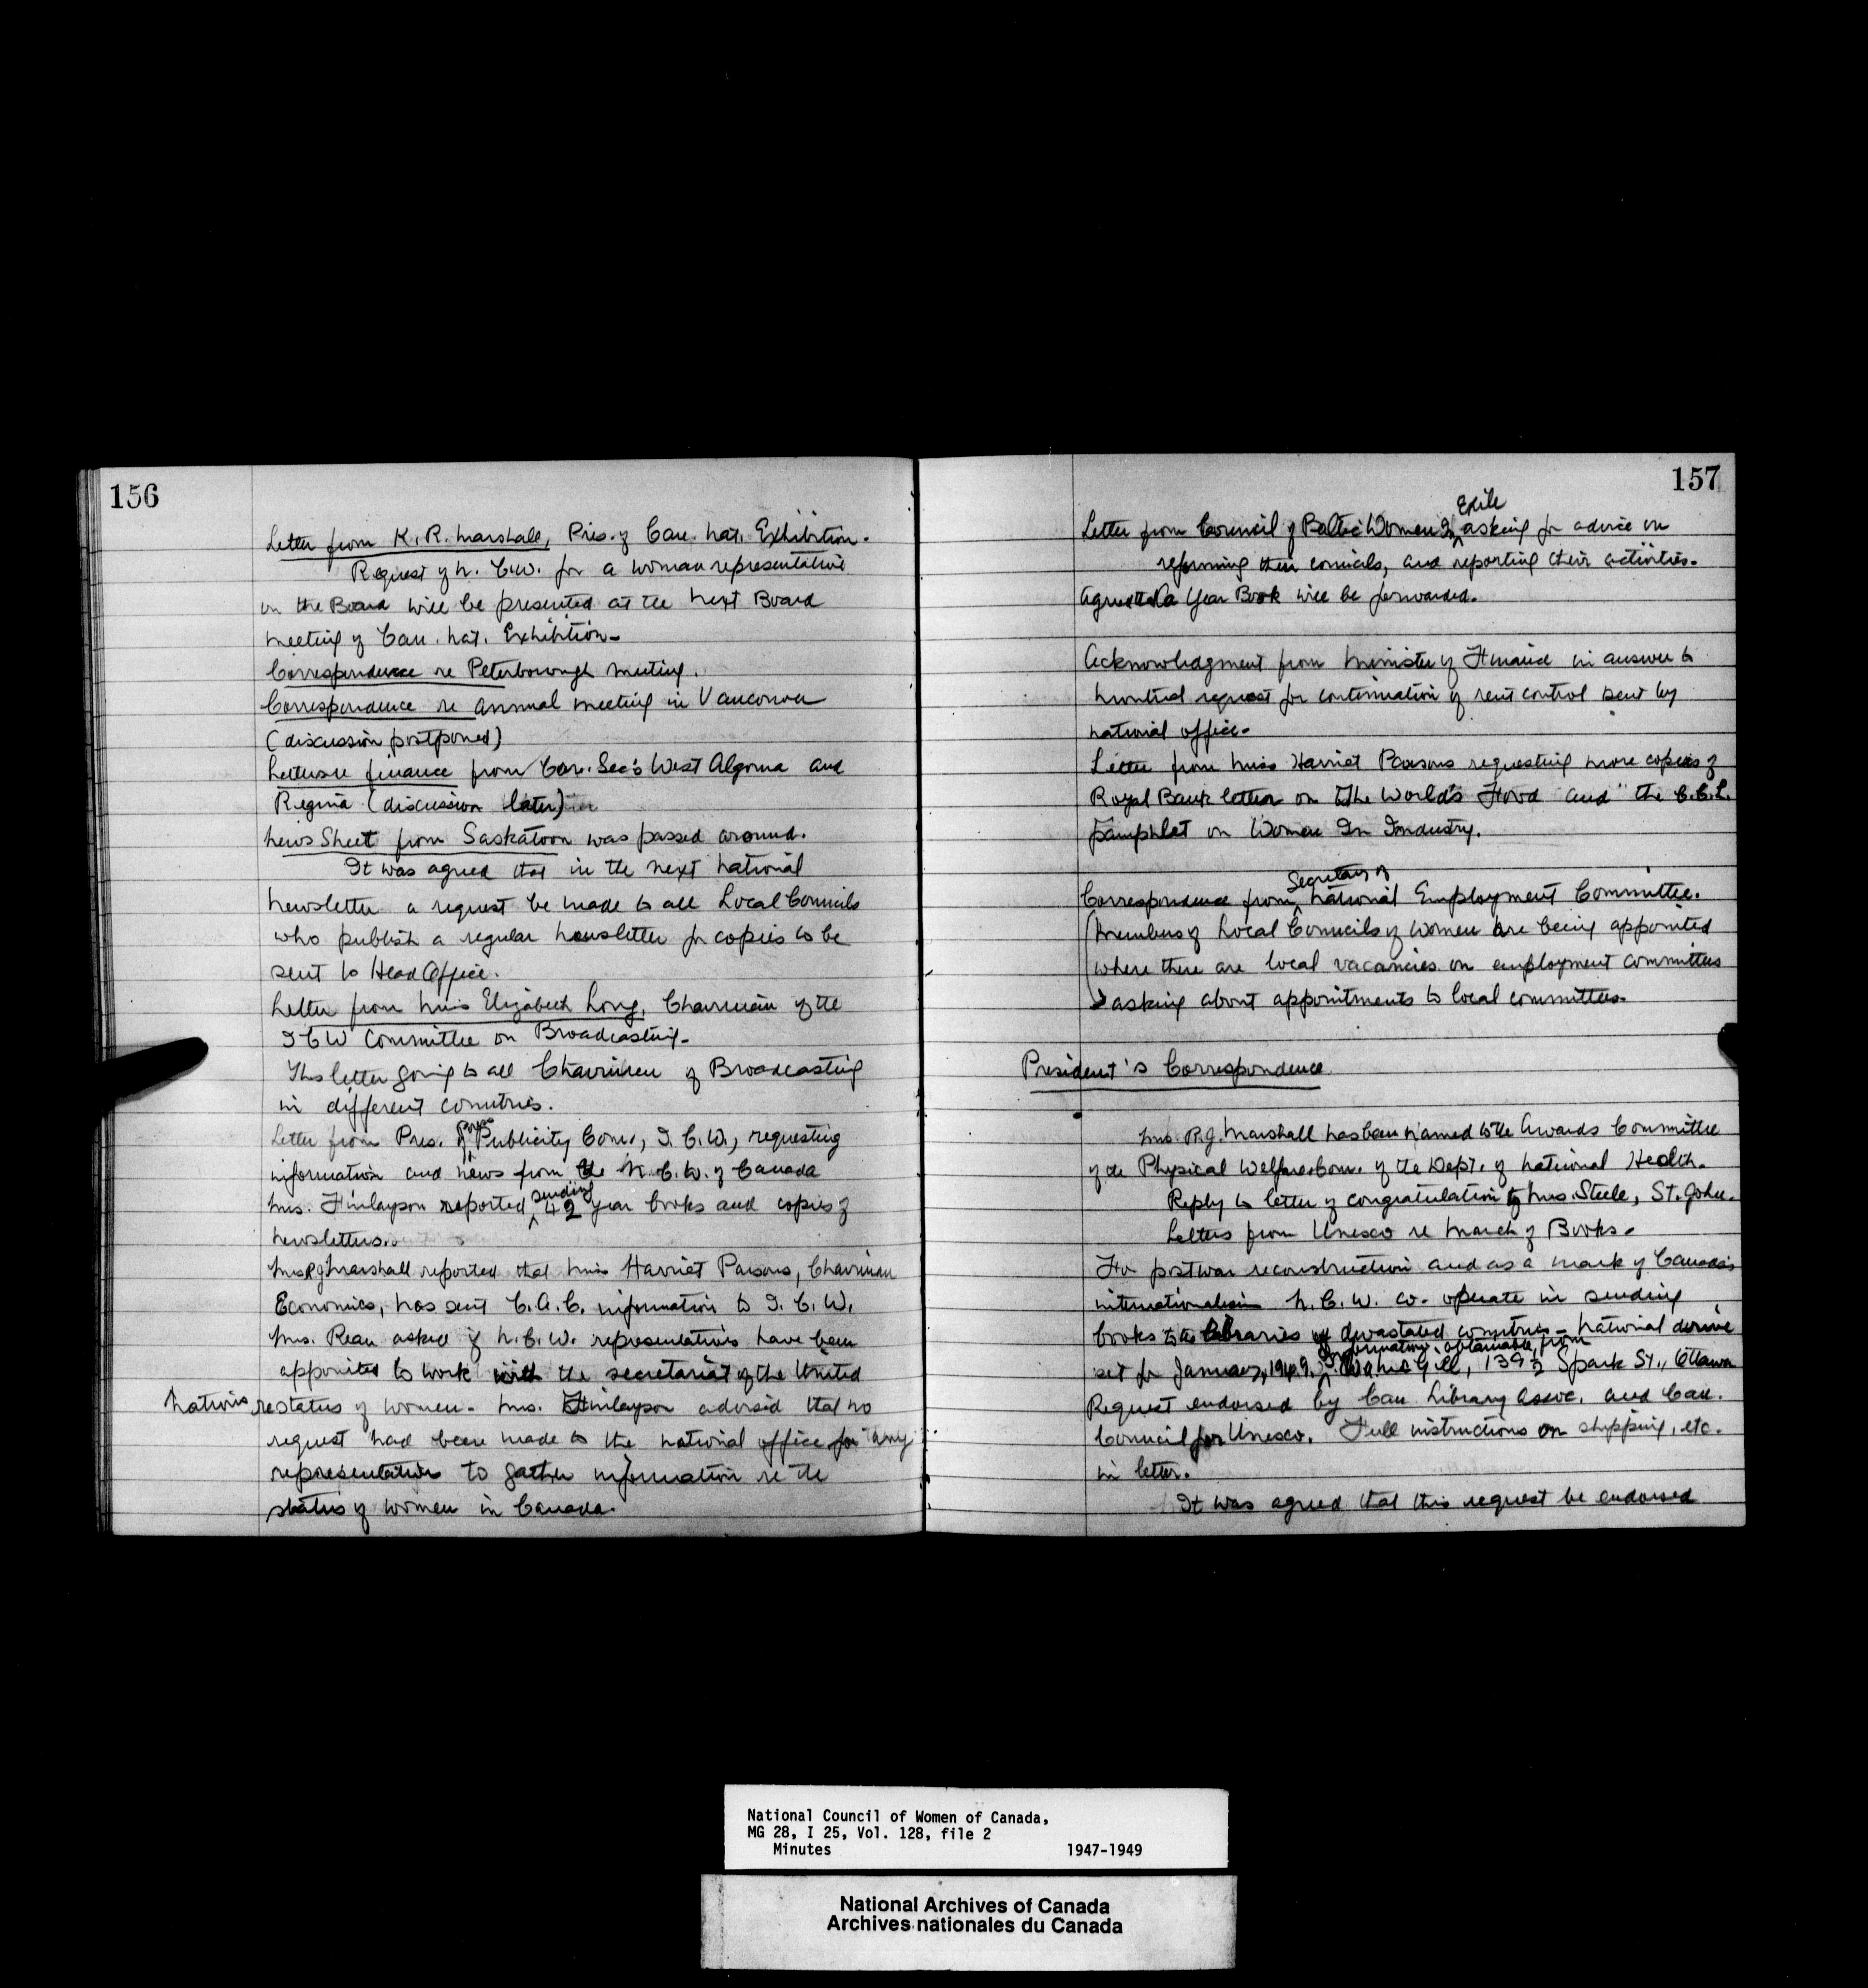 156
Letter from K. R. Marshall, Pres. of Can. Nat. Exhibition.
Request of N. C.W. for a woman representative
on the Board will be presented at the next Board
meeting of Can. Nat. Exhibition.
Correspondence re Peterborough meeting.
Correspondence re annual meeting in Vancouver
(discussion postponed)
Letters re finance from Cor. Sec's West Algoma and
Regina (discussion later)
News Sheet from Saskatoon was passed around.
It was agreed that in the next National
Newsletter a request be made to all Local Councils
who publish a regular newsletter for copies to be
sent to Head Office.
Letter from Miss Elizabeth Long, Chairman of the
I C W Committee on Broadcasting.
This letter going to all Chairmen of Broadcasting
in different countries.
Letter from Pres. of Press Publicity Com., I. C. W., requesting
information and news from the N. C. W. of Canada
Mrs. Finlayson reported sending 42 year books and copies of
newsletters.
Mrs R J Marshall reported that Miss Harriet Parsons, Chairman
Economics, has sent C. A. C. information to I. C. W.
Mrs. Rean asked if N. C. W. representatives have been
appointed to work with the secretariat of the United
Nations re status of women. Mrs. Finlayson advised that no
request had been made to the national office for any
representatives to gather information re the
status of women in Canada.
157
Letter from Council of Baltic Women In Exile asking for advice on
reforming their councils, and reporting their activities.
Agreed a Year Book will be forwarded.
Acknowledgment from Minister of Finance in answer to
Montreal request for continuation of rent control sent by
national office.
Letter from Miss Harriet Parsons requesting more copies of
Royal Bank letter on "The World's Food" and "the C.C.L.
pamphlet on Women In Industry.
Correspondence from Secretary of National Employment Committee.
(Members of Local Councils of Women are being appointed
where there are local vacancies on employment committees
asking about appointments to local committees.
President's Correspondence
Mrs. R. J. Marshall has been named to the Awards Committee
of the Physical Welfare Com. of the Dept. of National Health.
Reply to letter of congratulation to Mrs. Steele, St. John.
Letters from Unesco re March of Books.
For postwar reconstruction and as a mark of Canada's
internationalism N. C. W. co-operate in sending
books to the libraries of devastated countries - National drive
set for January, 1949. Information obtainable from 139½ Spark St., Ottawa
Request endorsed by Can. Library Assoc. and Can.
Council for Unesco. Full instructions on shipping, etc.
in letter.
It was agreed that this request be endorsed
National Council of Women of Canada,
MG 28, I 25, Vol. 128, file 2
Minutes 1947-1949
National Archives of Canada
Archives nationales du Canada